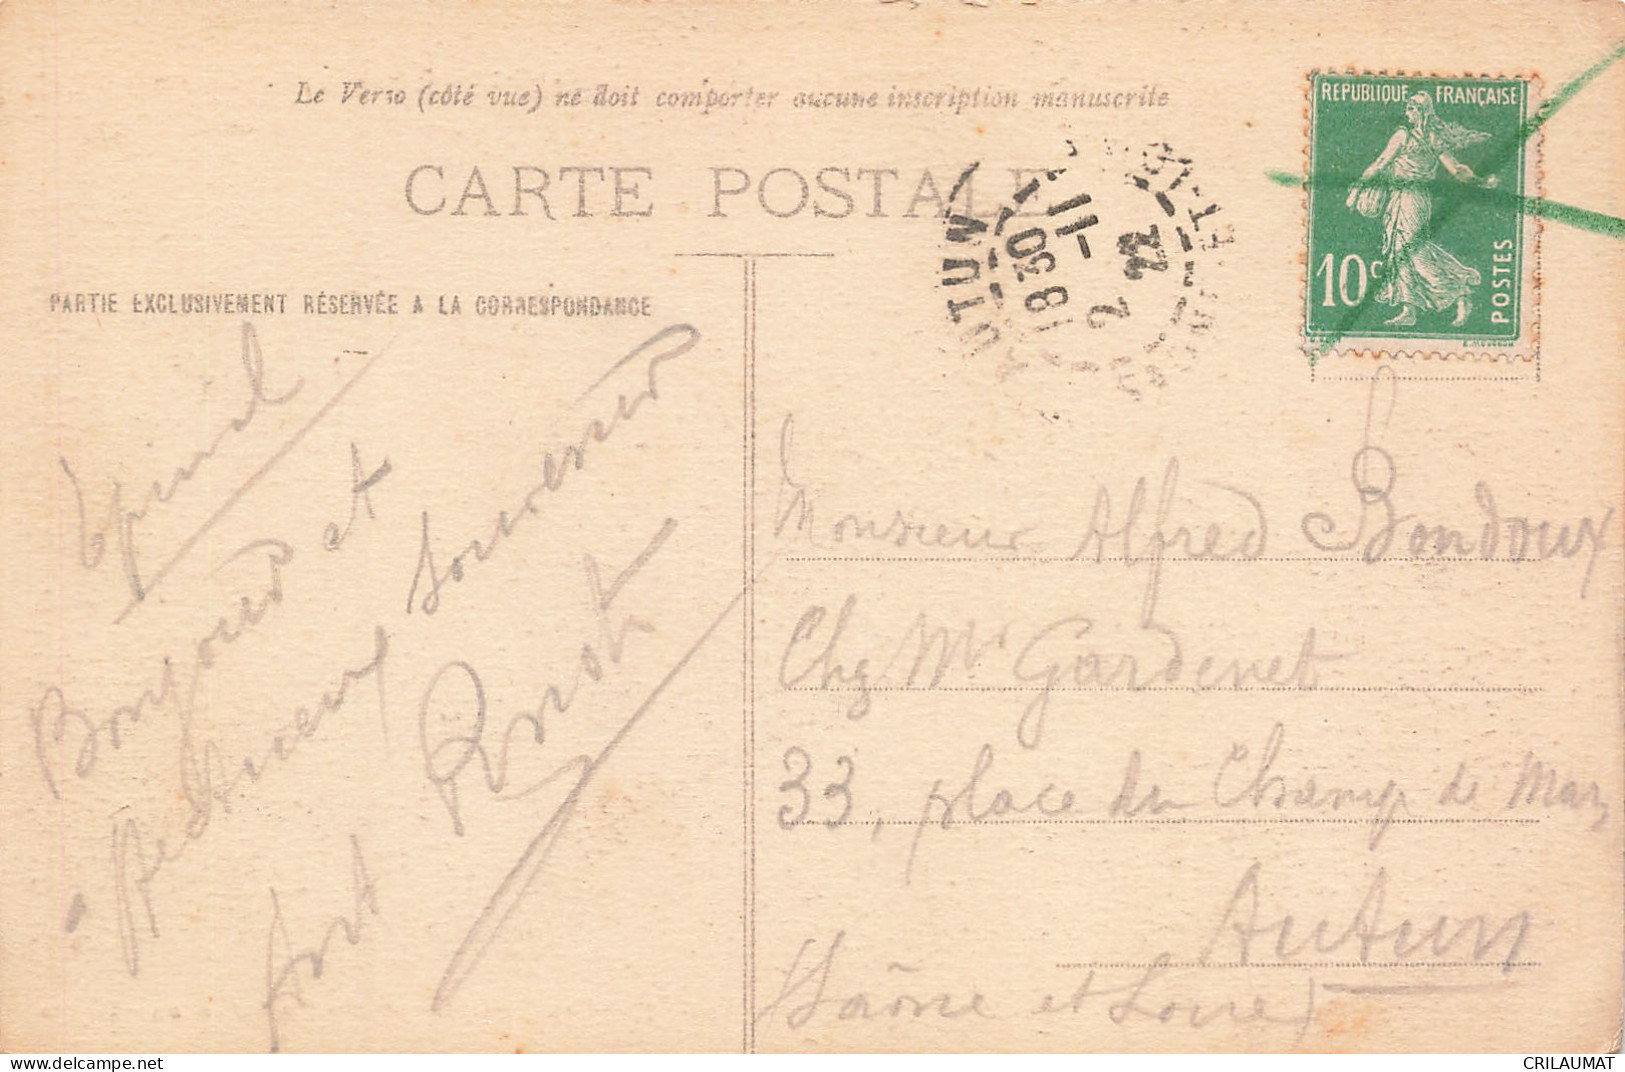 Le Verso (côté vue) ne doit comporter aucune inscription manuscrite
CARTE POSTALE
PARTIE EXCLUSIVEMENT RÉSERVÉE A LA CORRESPONDANCE
REPUBLIQUE FRANÇAISE
10c
POSTES
AUTUN
18 30
2 -11
22
SAONE-ET-LOIRE
Epinal
Bonjour et
souvenir
Monsieur Alfred Bondoux
Chez Mr Gardenet
33, place du Champ de Mars
Autun
(Saône et Loire)
CRILAUMAT